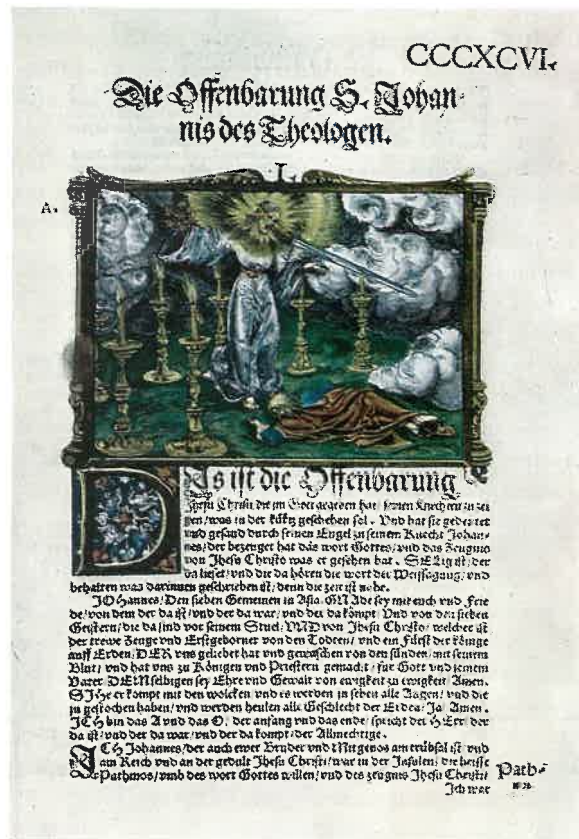 CCCXCVI.
Die Offenbarung S. Johan-
nis des Theologen.
I.
A.
DAs ist die Offenbarung
Jhesu Christi die im Gott gegeben hat / seinen Knechten zu zei
gen / was in der kürtz geschehen sol. Vnd hat sie gedeutet
vnd gesand durch seinen Engel zu seinem Knecht Johan-
nes / der bezeuget hat das wort Gottes / vnd das Zeugnis
von Jhesu Christo was er gesehen hat. SELig ist / der
da lieset / vnd die da hören die wort der Weissagung / vnd
behalten was darinnen geschrieben ist / denn die zeit ist nahe.
JOHannes / Den sieben Gemeinen in Asia. GNAde sey mit euch vnd Frie
de / von dem der da ist / vnd der da war / vnd der da kompt / Vnd von den sieben
Geistern / die da sind vor seinem Stuel / VND von Jhesu Christo / welcher ist
der trewe Zeuge vnd Erstgeborner von den Todten / vnd ein Fürst der Könige
auff Erden / DER vns geliebet hat vnd gewaschen von den sünden / mit seinem
Blut / vnd hat vns zu Königen vnd Priestern gemacht / für Gott vnd seinem
Vater / DEMselbigen sey Ehre vnd Gewalt von ewigkeit zu ewigkeit / Amen.
SIhe er kompt mit den wolcken / vnd es werden in sehen alle Augen / vnd die
in gestochen haben / vnd werden heulen alle Geschlecht der Erden / Ja / Amen.
ICH bin das A vnd das O / der anfang vnd das ende / spricht der HErr / der
da ist / vnd der da war / vnd der da kompt / der Allmechtige.
ICH Johannes / der auch ewer Bruder vnd Mitgenos am trübsal ist / vnd
am Reich vnd an der gedult Jhesu Christi / war in der Insulen / die heisse
Pathmos / vmb des wort Gottes willen / vnd des zeugnis Jhesu Christi
Ich war
Path-